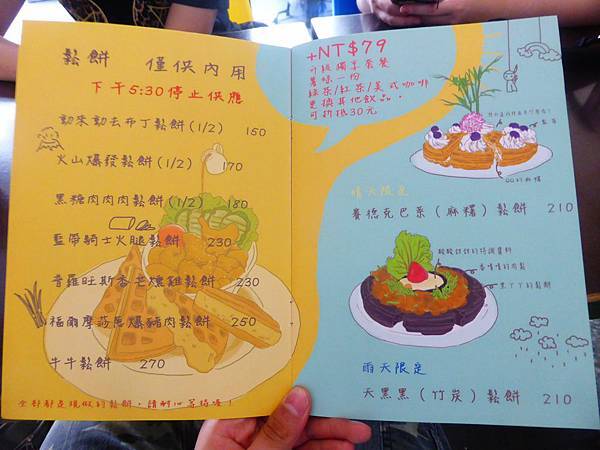 鬆餅 僅供內用
下午5:30停止供應
動來動去布丁鬆餅(1/2) 150
火山爆發鬆餅(1/2) 170
黑糖肉肉肉鬆餅(1/2) 180
藍帶騎士火腿鬆餅 230
普羅旺斯香芒燻雞鬆餅 230
福爾摩莎蔥爆豬肉鬆餅 250
牛牛鬆餅 270
全部都是現做的鬆餅，請耐心等待喔！
+NT$79
升級獨享套餐
薯條一份
綠茶/紅茶/美式咖啡
更換其他飲品，
可折抵30元.
晴天限定
賽德克巴系(麻糬)鬆餅 210
酸酸甜甜的特調醬料
香噴噴的肉鬆
黑ㄚㄚ的鬆餅
雨天限定
天黑黑(竹炭)鬆餅 210